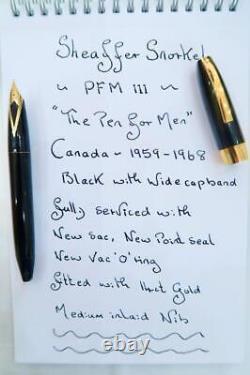 Sheaffer Snorkel
~ PFM III ~
"The Pen for Men"
Canada - 1959-1968
Black with Wide capband
fully serviced with
New sac, New Point seal
New Vac 'O' ring
fitted with 14ct Gold
Medium inlaid Nib